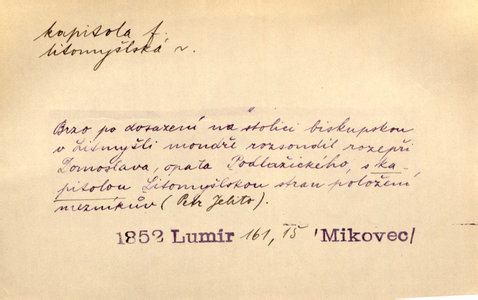 kapitola f.
litomyšlská v.
Brzo po dosazení na stolici biskupskou
v Litmyšli moudře rozsoudil rozepři
Domoslava, opata Podlažického, s ka-
pitolou Litomyšlskou stran položení
mezníkův (Petr Jelito).
1852 Lumír 161, 15 /Mikovec/